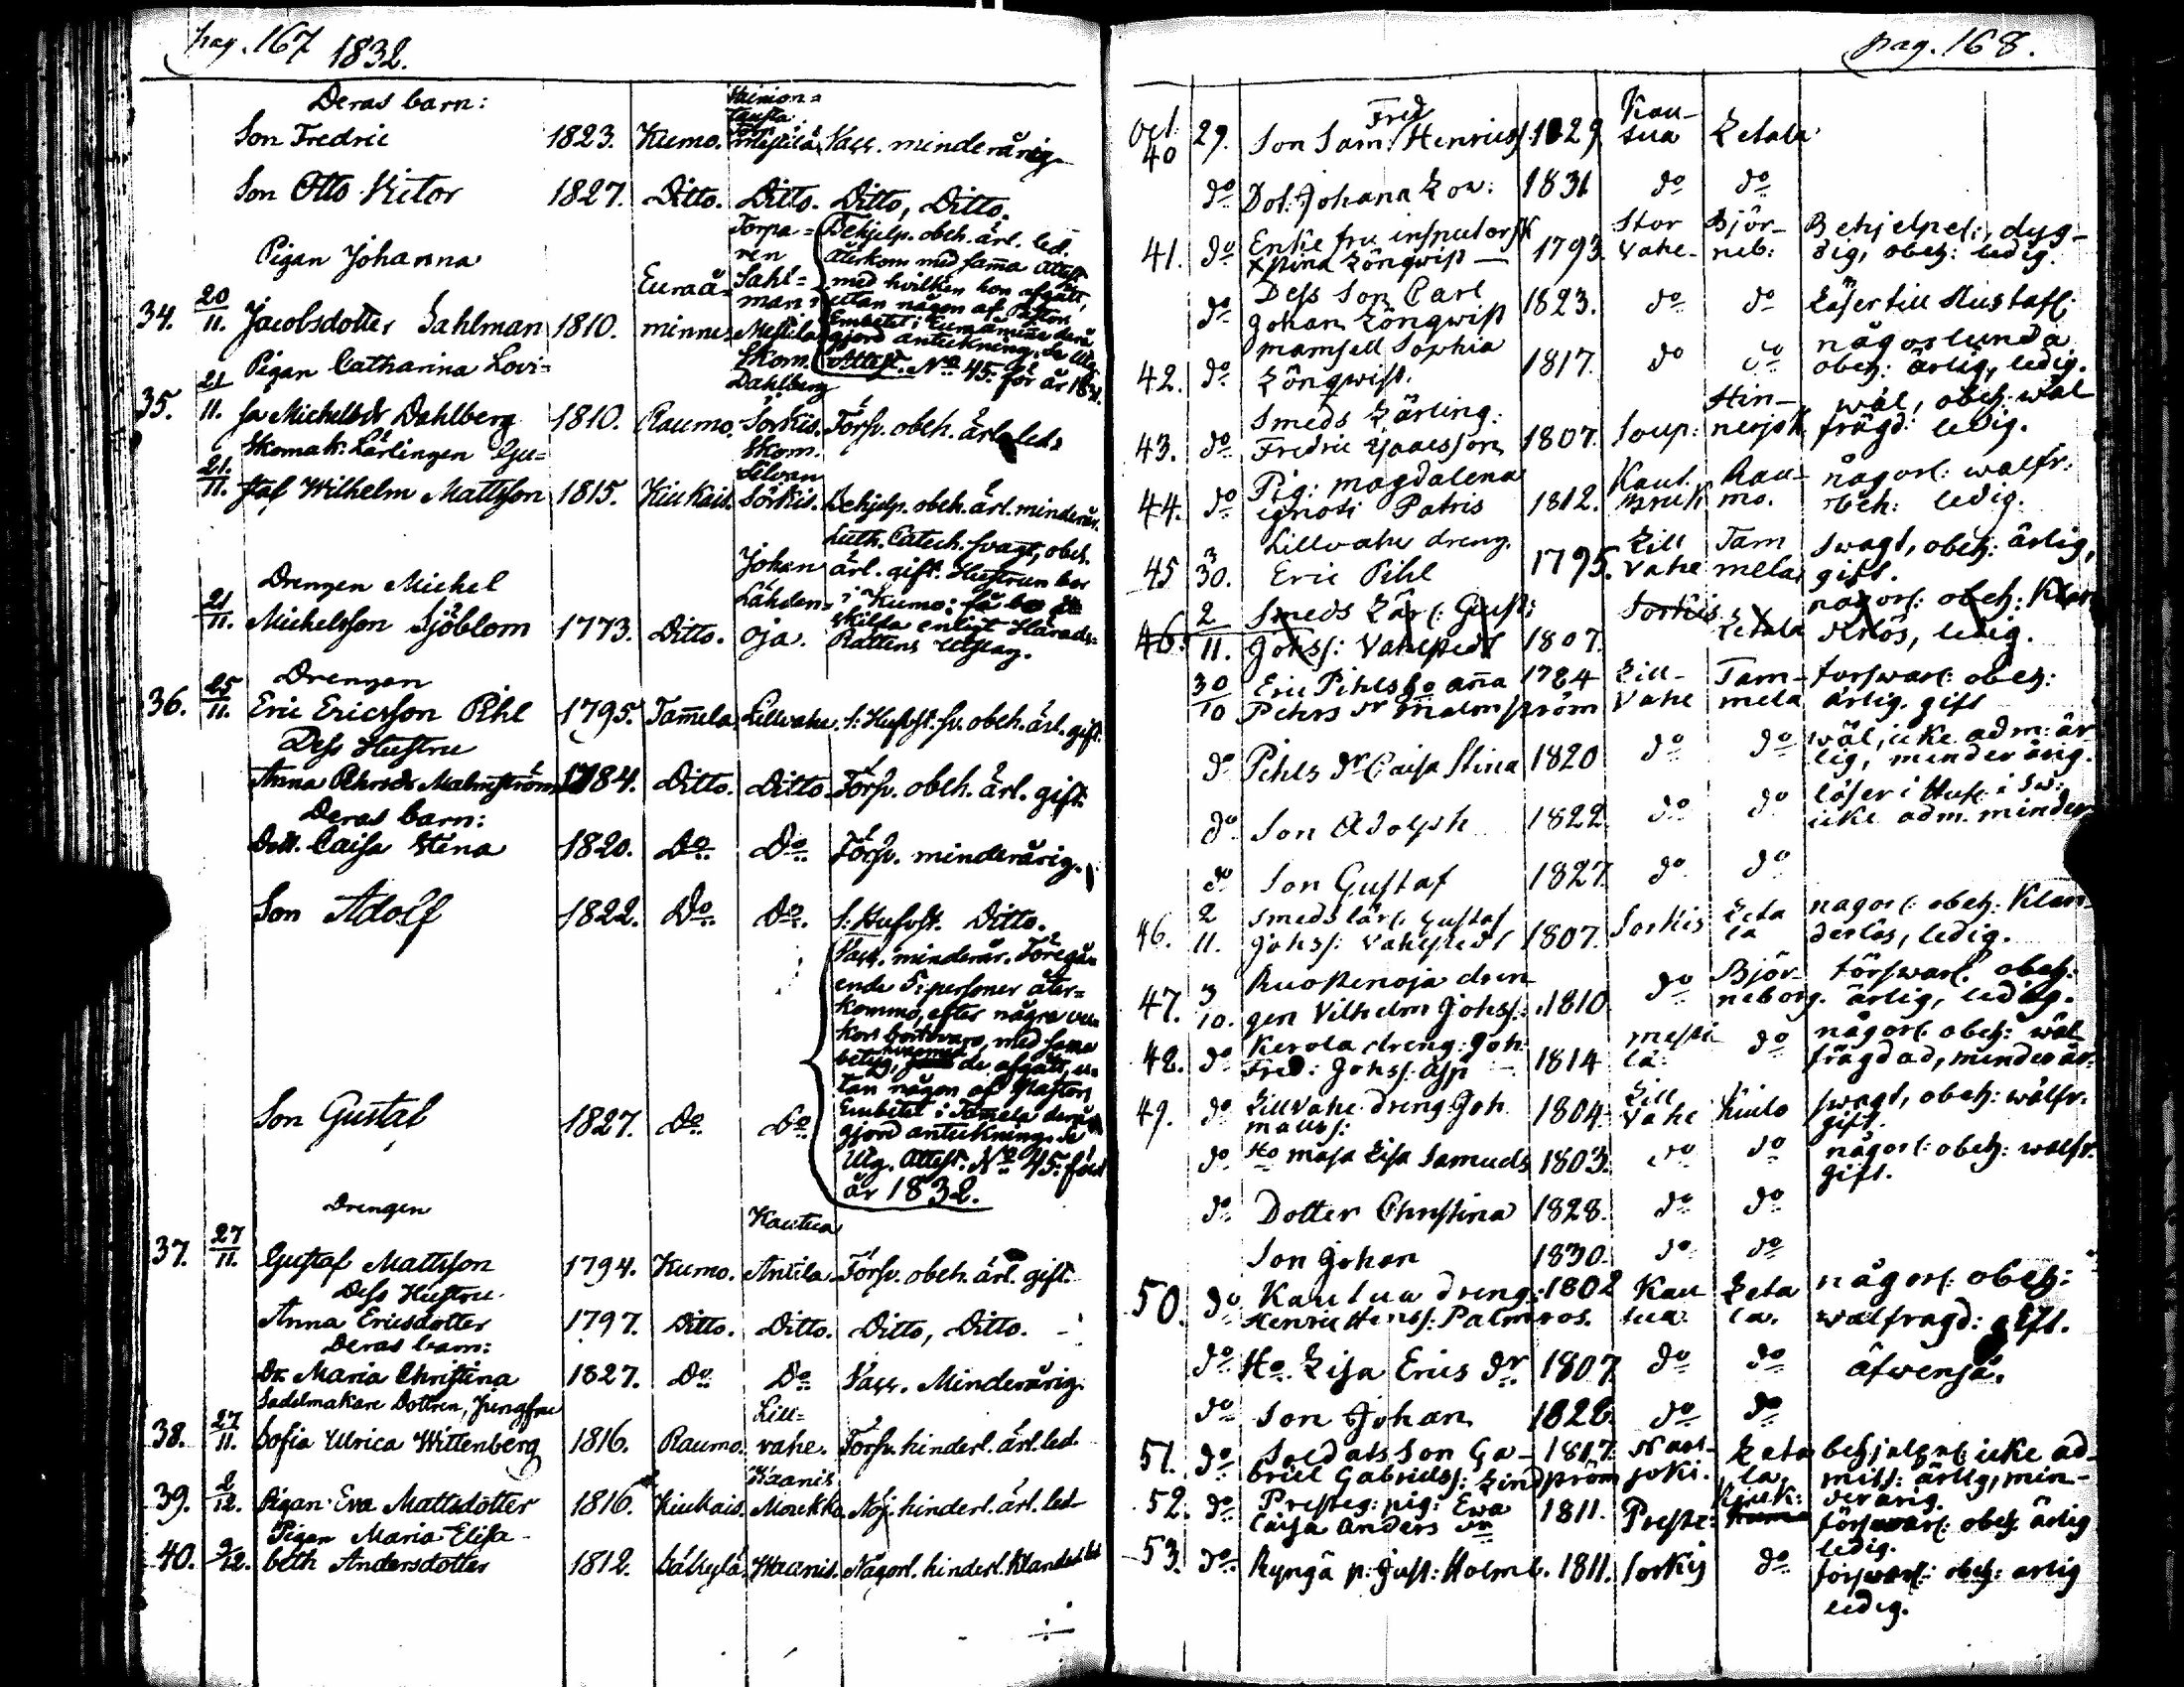 pag. 167 1832.
Deras barn:
Son Fredric 1823. Kumo. Vacc. minderårig
Son Otto Victor 1827. Ditto. Ditto. Ditto, Ditto.
Pigan Johanna
Jacobsdotter Sahlman
34. 20/11. 1810. Euraå= minne
Torpa= ren Sahl= man
Behjelp. obeh. ärl. led.
Återkom med samma Attest
med hvilken hon afgått,
utan någon af Pastors
Embetet i Euraåminne derå
gjord anteckning, se Utg.
Attest. No 45. för år 1832.
Pigan Catharina Lovi=
35. 21/11. sa Michelsdr Dahlberg 1810. Raumo. Skom. Dahlberg Sorkis. Försv. obeh. ärl. led.
Skomak: Lärlingen Gu=
21/11. staf Wilhelm Mattsson 1815. Kiukais. Skom. Sorkis. Behjelp. obeh. ärl. minderår.
Drengen Michel
21/11. Michelsson Sjöblom 1773. Ditto. Johan Lähden= oja.
Luth. Catech. svagt, obeh.
ärl. gift. Hustrun bor
i Kumo;
skilda enligt Härads=
Rättens Utslag.
Drengen
36. 25/11. Eric Ericsson Pihl 1795. Tam̄ela. Lillvahe. obeh. ärl. gift.
Dess Hustru
Anna Pehrsdr Malmström 1784. Ditto. Ditto. Försv. obeh. ärl. gift.
Deras barn:
Dott. Caisa Stina 1820. Do Do Försv. minderårig.
Son Adolf 1822. Do Do Ditto.
Son Gustaf 1827. Do Do
Vacc. minderår. Föregå=
ende 5 personer åter=
kommo, efter några vec=
kors bortovaro, med samma
betyg, hvarmed de afgått, u=
tan någon af Pastors
Embetet i Tam̄ela derå
gjord anteckning, se
Utg. Attest. No 45. för
år 1832.
Drengen
37. 27/11. Gustaf Mattsson 1794. Kumo. Kautua Antila Försv. obeh. ärl. gift.
Dess Hustru
Anna Ericsdotter 1797. Ditto. Ditto. Ditto, Ditto.
Deras barn:
Dr Maria Christina 1827. Do Do Vacc. Minderårig
Sadelmakare Dottren, Jungfru
38. 27/11. Sofia Ulrica Wittenberg 1816. Raumo. Lill= vahe. Försv. hinderl. ärl. led.
39. 2/12. Pigan Eva Mattsdotter 1816. Kiukais. Kaanis Moukko Nöj. hinderl. ärl. led
Pigan Maria Elisa-
40. 9/12. beth Andersdotter 1812. Säkylä. Någorl. hinderl.
pag. 168.
Oct. 40 29. Son Sam: Fred Henrics: 1829 Kau- tua Letala
do Dot: Johana Lov: 1831 do do
41. do Enke fru inspectorsk Xstina Löngwist 1793. Stor Vahe- Björ- neb: Behjelpel: dyg- dig, obeh: ledig.
do Dess Son Carl Johan Löngwist 1823. do do Läser till Hustafl:
42. do mamsell Sophia Löngwist. 1817. do do någorlunda obeh: ärlig, ledig.
43. do Smeds Lärling: Fredric Isaacsson 1807. Soup: wäl, obeh: wäl frägd: ledig.
44. do Pig: Magdalena ignoti Patris 1812. Kaut. Bruk Rau- mo. någorl: wälfr: obeh: ledig.
45 3/30. Lillvahe dreng. Eric Pihl 1795. Lill Vahe Tam mela swagt, obeh: ärlig, gift.
46. 2/11. Smeds Lärl: Gust: Johss: Vahlstedt 1807. Sorkis Letala någorl: obeh: Klan derlös, ledig.
30/10 Eric Pihls Ho An̄a Pehrs dr Malmström 1784 Lill- Vahe Tam- mela forswarl: obeh: ärlig. gift
do Pihls dr Caisa Stina 1820 do do wäl, icke adm: är lig, minderårig.
do Son Adolph 1822 do do läser i Hust: i icke adm. minder
do Son Gustaf 1827. do do
46. 2/11. Smeds lärl. Gustaf Johss: Vahlstedt 1807. Sorkis Leta la någorl: obeh: Klan- derlös, ledig.
47. 3/10. Ruokenoja dren gen Vilhelm Johss: 1810 do Björ- neborg. försvarl. obeh: ärlig, ledig.
48. do Kerola dreng: Joh: Fred: Johss. Asp 1814 mesti la: do någorl: obeh: wäl frägdad, minderår.
49. do Lillvahe dreng Joh Matts: 1804 Lill Vahe Kiulo swagt, obeh: wälfr: gift.
do Ho Maja Lisa Samuels 1803. do do någorl: obeh: wälfr. gift.
do Dotter Christina 1828. do do
Son Johan 1830. do do
50. do Kautua dreng: Henric Henrs: Palmros. 1802 Kau tua Leta la. någorl: obeh: wälfragd: gift.
do Ho. Lisa Erics dr 1807 do do äfwenså.
do Son Johan 1828 do do
51. do Soldats Son Ga- briel Gabrielss: Lindström 1817. joki. Leta la. behjelpel: icke ad- mitt: ärlig, min- derårig.
52. do Presteg: pig: Ewa Caisa Anders dr 1811. Preste: Kiuk: försvarl: obeh: ärlig ledig.
53. do p: Just: Holmb. 1811. Sorkis do försvarl: obeh: ärlig ledig.